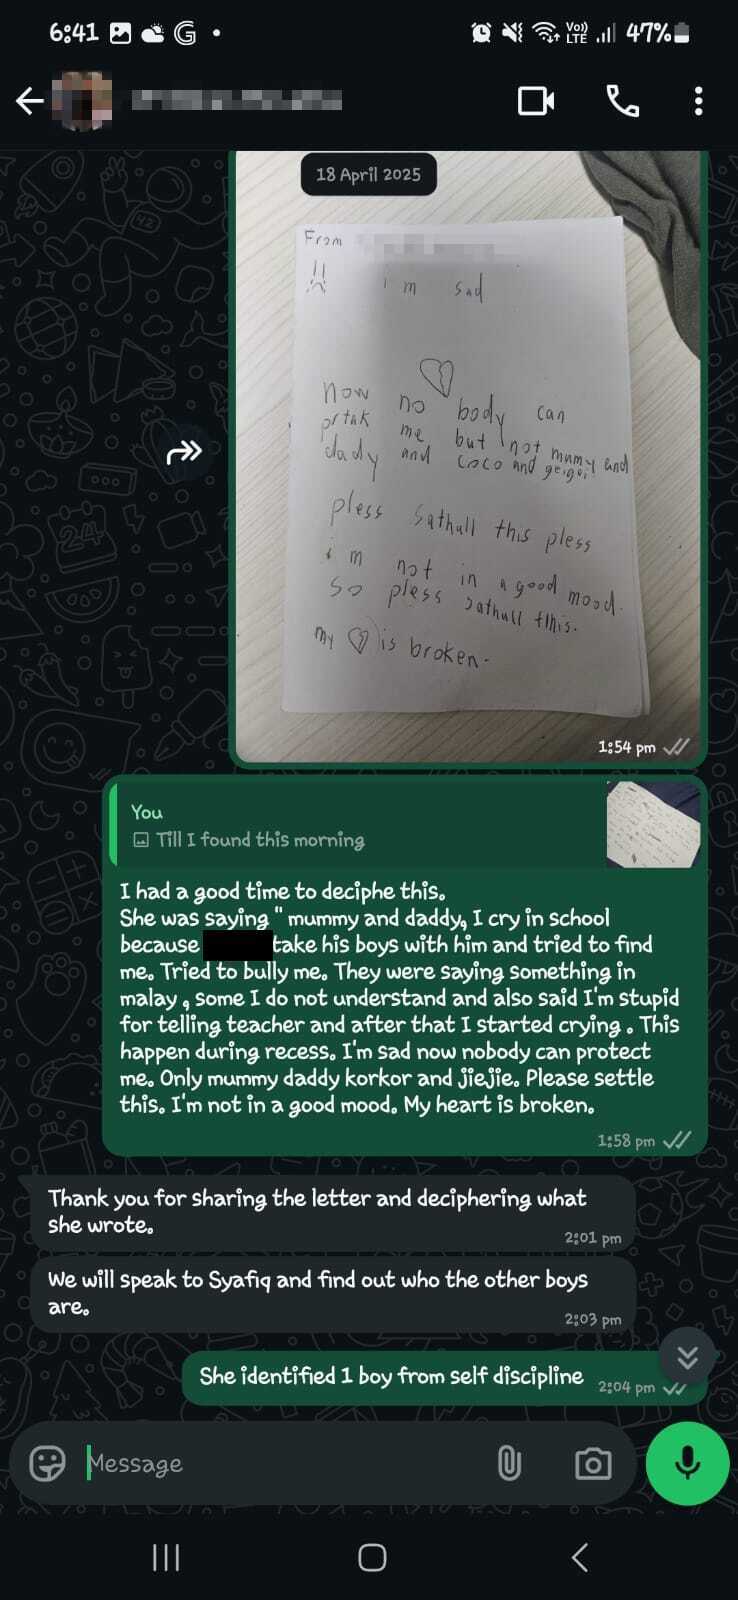 6:41
Vo))
LTE
47%
18 April 2025
From
i m sad
now no body can
prtak me but not mumy and
dady and coco and geigei!
pless sathull this pless
i m not in a good mood.
so pless sathull this.
my is broken.
1:54 pm
You
Till I found this morning
I had a good time to deciphe this.
She was saying " mummy and daddy, I cry in school
because take his boys with him and tried to find
me. Tried to bully me. They were saying something in
malay , some I do not understand and also said I'm stupid
for telling teacher and after that I started crying . This
happen during recess. I'm sad now nobody can protect
me. Only mummy daddy korkor and jiejie. Please settle
this. I'm not in a good mood. My heart is broken.
1:58 pm
Thank you for sharing the letter and deciphering what
she wrote.
2:01 pm
We will speak to Syafiq and find out who the other boys
are.
2:03 pm
She identified 1 boy from self discipline
2:04 pm
Message